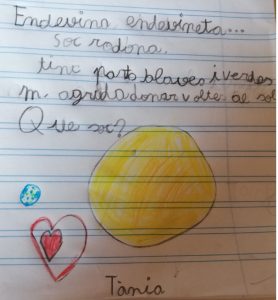 Endevina endevineta...
Soc rodona.
tinc parts blaves i verdes
m, agrada donar volte al sol
Que soc?
Tània